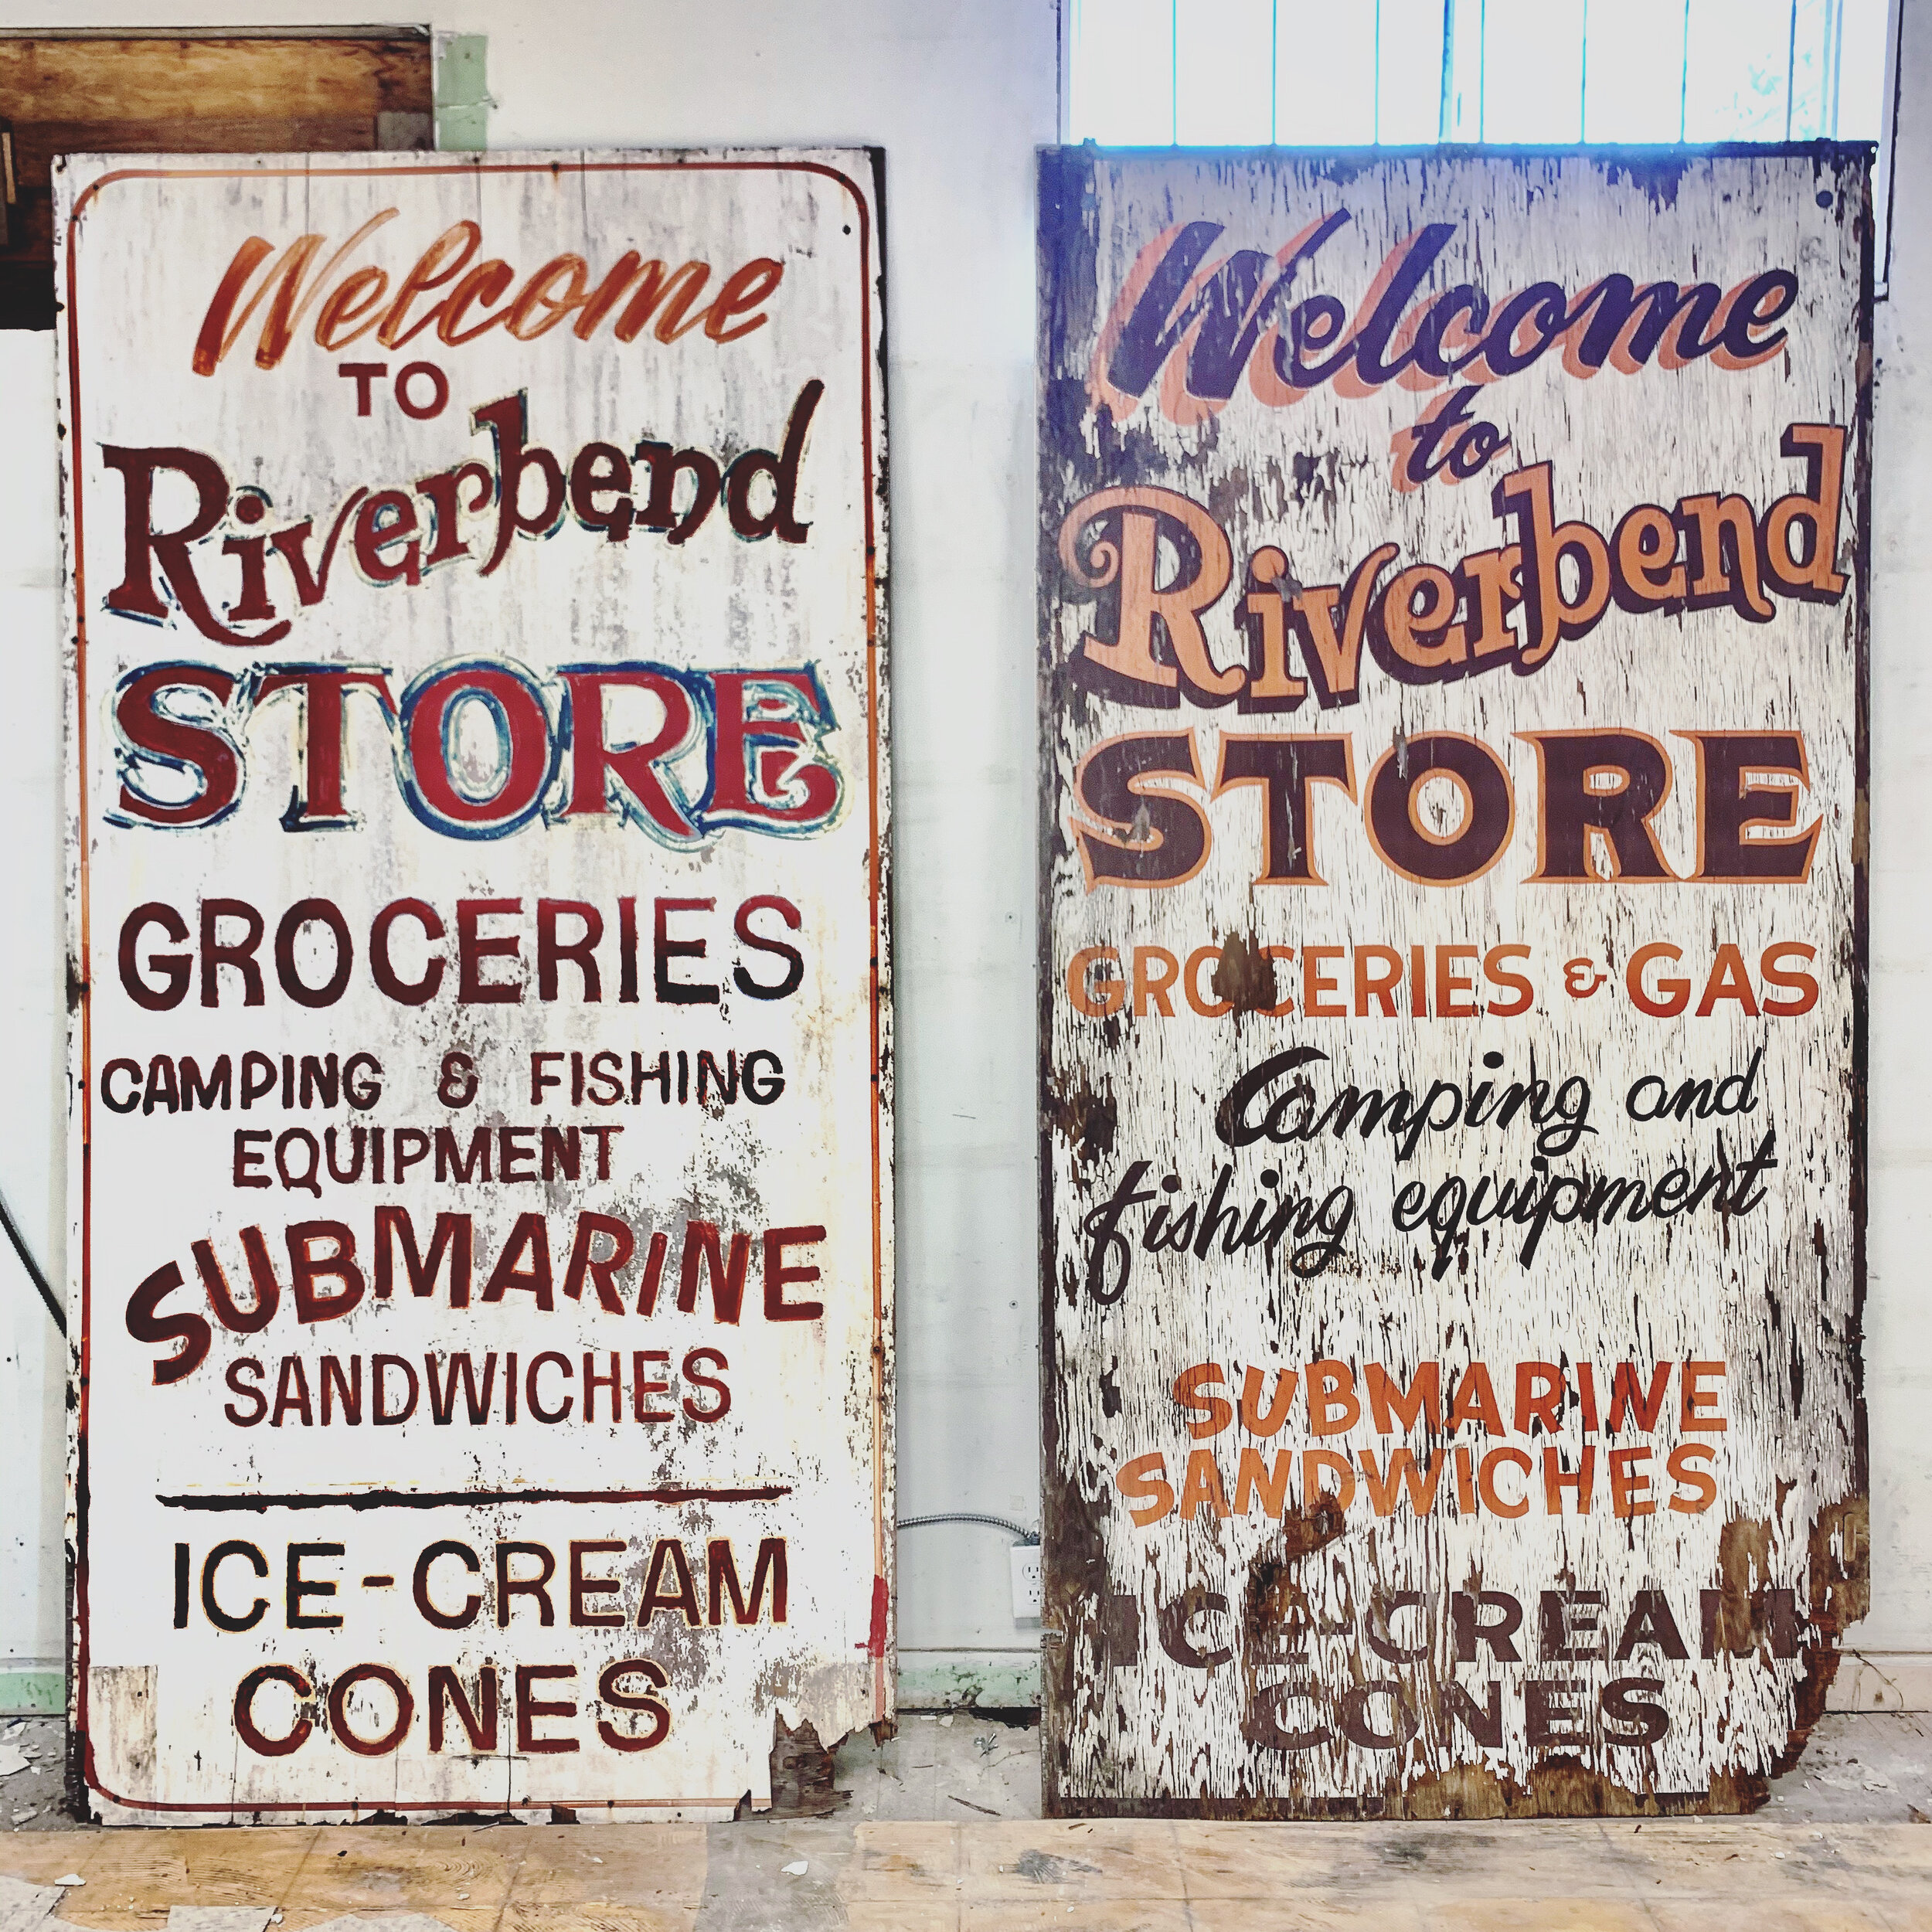 Welcome
TO
Riverbend
STORE
GROCERIES
CAMPING & FISHING
EQUIPMENT
SUBMARINE
SANDWICHES
ICE-CREAM
CONES
Welcome
to
Riverbend
STORE
GROCERIES & GAS
Camping and
fishing equipment
SUBMARINE
SANDWICHES
ICE-CREAM
CONES